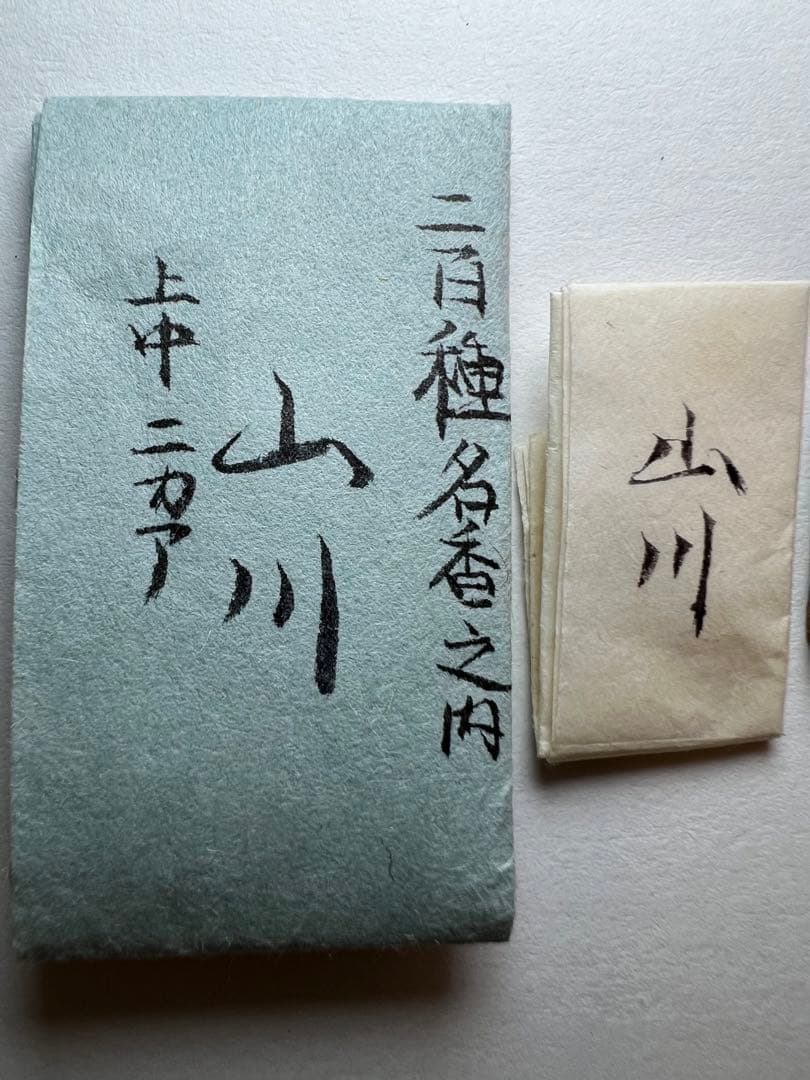 二百種名香之内
山川
上中 ニカア
山川